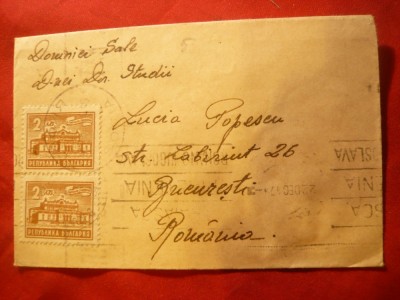 Domniei Sale
D-nei Dor. Studii
Lucia Popescu
str. Labirint 26
București
România
2
РЕПУБЛИКА БЪЛГАРИЯ
2
РЕПУБЛИКА БЪЛГАРИЯ
DEC 47